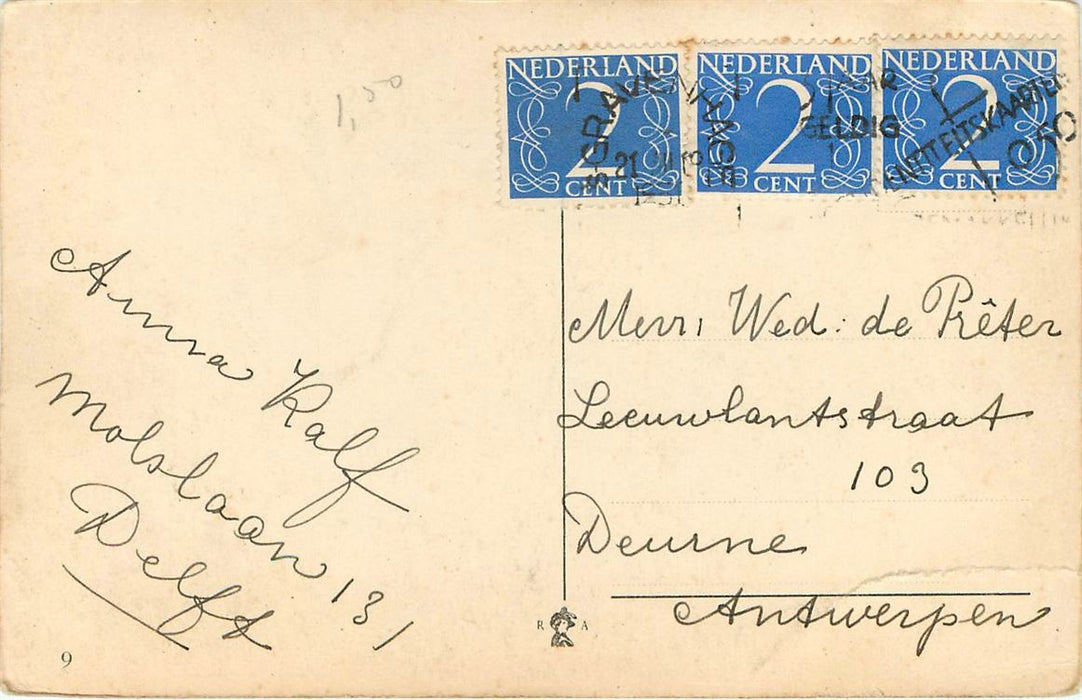 1,50
NEDERLAND NEDERLAND NEDERLAND
2 2 2
CENT CENT CENT
'S GRAVENHAGE
21
JAAR
GELDIG
IDENTITEITSKAARTEN
Anna Kalf
Molslaan 131
Delft
Mevr. Wed. de Prêter
Leeuwlantstraat
103
Deurne
Antwerpen
R A
9